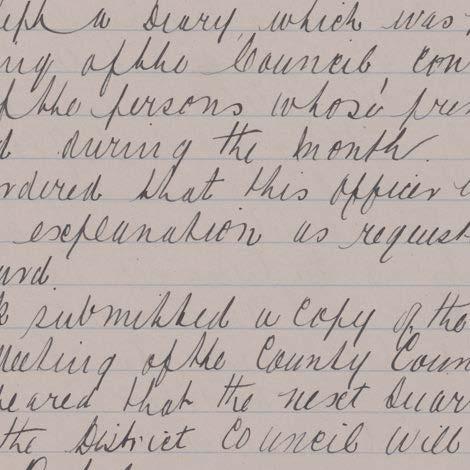 a Diary, which was
ing of the Council, con
of the persons whose pre
d during the month.
rdered that this officer
explanation as request
ard.
k submitted a copy of the
Meeting of the County Coun
peared that the next Quar
the District Council will